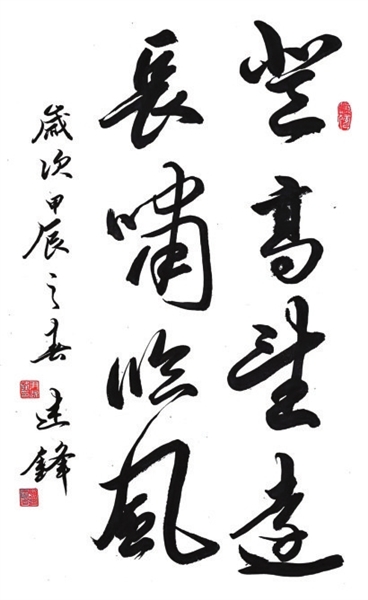 登高望遠
長嘯臨風
歲次甲辰之春 建鋒